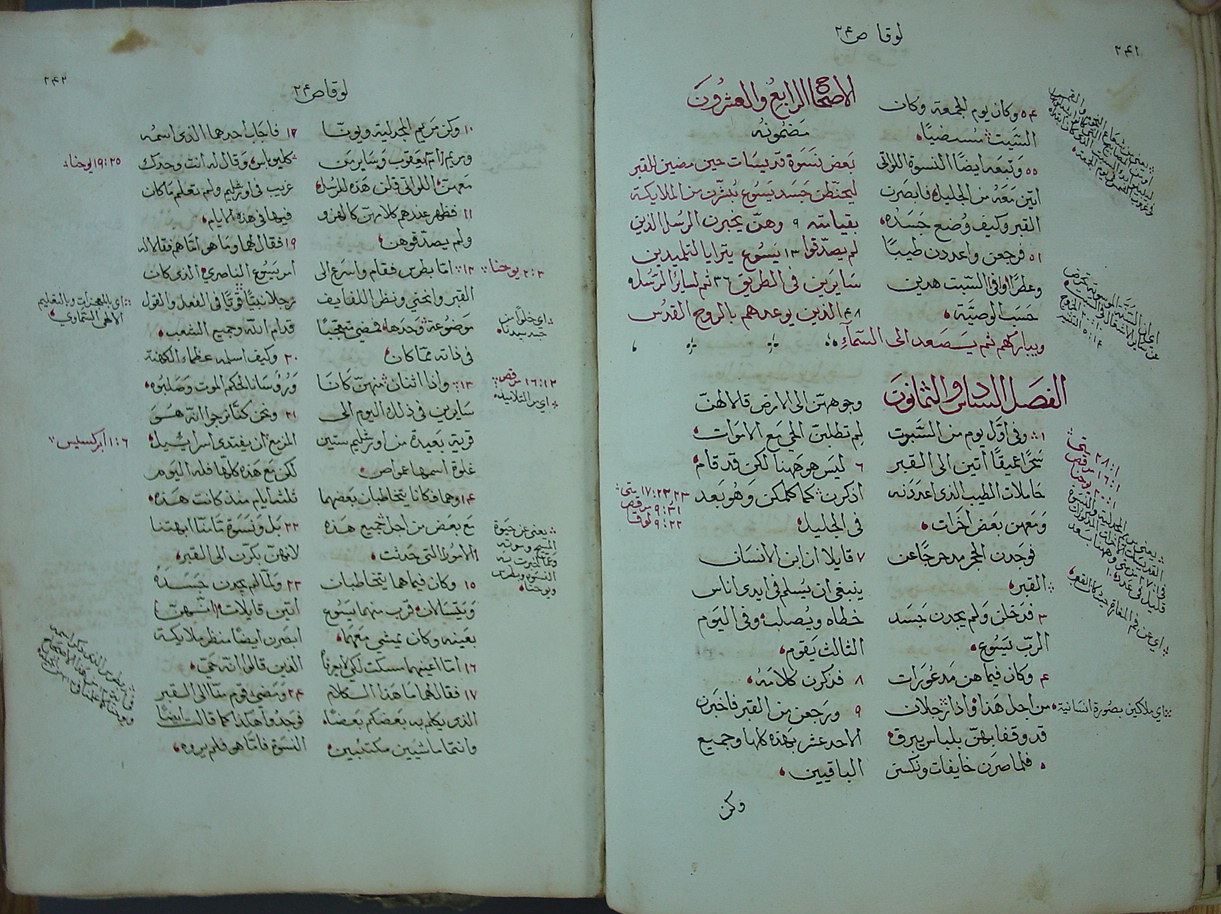 لوقا ص ٢٤
٢٤١
٥٤ وكان يوم الجمعة وكان
السبت
٥٥ وتبعه ايضًا النسوة اللواتي
اتين معه من الجليل فابصرن
القبر وكيف وضع جسده
٥٦ فرجعن واعددن طيبًا
وعطرًا وفي السبت هدين
حسب الوصية
الاصحاح الرابع والعشرون
مضمونه
بعض نسوة قديسات حين مضين للقبر
ليحنطن جسد يسوع يبشرن من الملايكة
بقيامته ٩ وهن يخبرن الرسل الذين
لم يصدقوا ١٣ يسوع يترايا لتلميذين
سايرين في الطريق ٣٦ ثم لساير الرسل
٤٨ الذين يوعدهم بالروح القدس
ويباركهم ثم يصعد الى السماء
الفصل السادس والثمانون
١ وفي اول يوم من السبوت
سحرًا عميقًا اتين الى القبر
حاملات الطيب الذي اعددنه
ومعهن بعض اخرات
فوجدن الحجر مدحرجًا عن
القبر
٣ فدخلن ولم يجدن جسد
الرب يسوع
٤ وكان فيما هن مذعورات
من اجل هذا واذا رجلان
قد وقفا بهن بلباس يبرق
٥ فلما صرن خايفات ونكسن
وجوههن الى الارض قالا لهن
لم تطلبن الحي مع الاموات
٦ ليس هو ههنا لكن قد قام
اذكرن كما كلمكن وهو بعد
في الجليل
٧ قايلا ان ابن الانسان
ينبغي ان يسلم في ايدي اناس
خطاه ويصلب وفي اليوم
الثالث يقوم
٨ فذكرن كلامه
٩ ورجعن من القبر فاخبرن
الاحد عشر بهذه كلها وجميع
الباقيين
وكن
متى ٢٨:١
مرقص ١٦:١
يوحنا ٢٠:١
اي ملاكين بصورة انسانية
متى ١٧:٢٣،٢٢
مرقص ٩:٣١
لوقا ٩:٢٢
لوقا ص ٢٤
٢٤٢
١٠ وكن مريم المجدلية ويونا
ومريم ام يعقوب وساير من
معهن اللواتي قلن هذه للرسل
١١ فظهر عندهم كلامهن كالهزو
ولم يصدقوهن
١٢ اما بطرس فقام واسرع الى
القبر وانحنى ونظر اللفايف
موضوعة وحدها فمضى متعجبًا
في ذاته مما كان
١٣ واذا اثنان منهم كانا
سايرين في ذلك اليوم الى
قرية بعيدة من اورشليم ستين
غلوة اسمها عمواص
١٤ وهما كانا يتخاطبان بعضهما
مع بعض من اجل جميع هذه
الامور التي حدثت
١٥ وكان فيما هما يتخاطبان
ويتسالان قرب منهما يسوع
بعينه وكان يمشي معهما
١٦ اما اعينهما امسكت لكي لا يعرفاه
١٧ فقال لهما ما هذا الكلام
الذي يكلم به بعضكم بعضًا
وانتما ماشيين مكتيبين
١٨ فاجاب احدهما الذي اسمه
كليوباس وقال له انت وحدك
غريب في اورشليم ولم تعلم ما كان
فيها في هذه الايام
١٩ فقال لهما وما هي اما هم فقالا له
امر يسوع الناصري الذي كان
رجلا نبيًا قويًا في الفعل والقول
قدام الله وجميع الشعب
٢٠ وكيف اسلمه عظماء الكهنة
وروسانا لحكم الموت وصلبوه
٢١ ونحن كنا نرجوا انه هو
المزمع ان يفتدي اسراييل
لكن مع هذه كلها فله اليوم
ثلثة ايام منذ كانت هذه
٢٢ بل ونسوة منا ابهتننا
لانهن بكرن الى القبر
٢٣ ولما لم يجدن جسده
اتين قايلات انهن
ابصرن ايضًا منظر ملايكة
الذين قالوا انه حي
٢٤ ومضى قوم منا الى القبر
فوجدوا هكذا كما قالت ايضًا
النسوة فاما هو فلم يروه
يوحنا ٢٠:٣
مرقص ١٦:١٢
اي من التلاميذ
يوحنا ١٩:٢٥
اي بالمعجزات وبالتعليم
الالهي السماوي
ابركسيس ١:٦